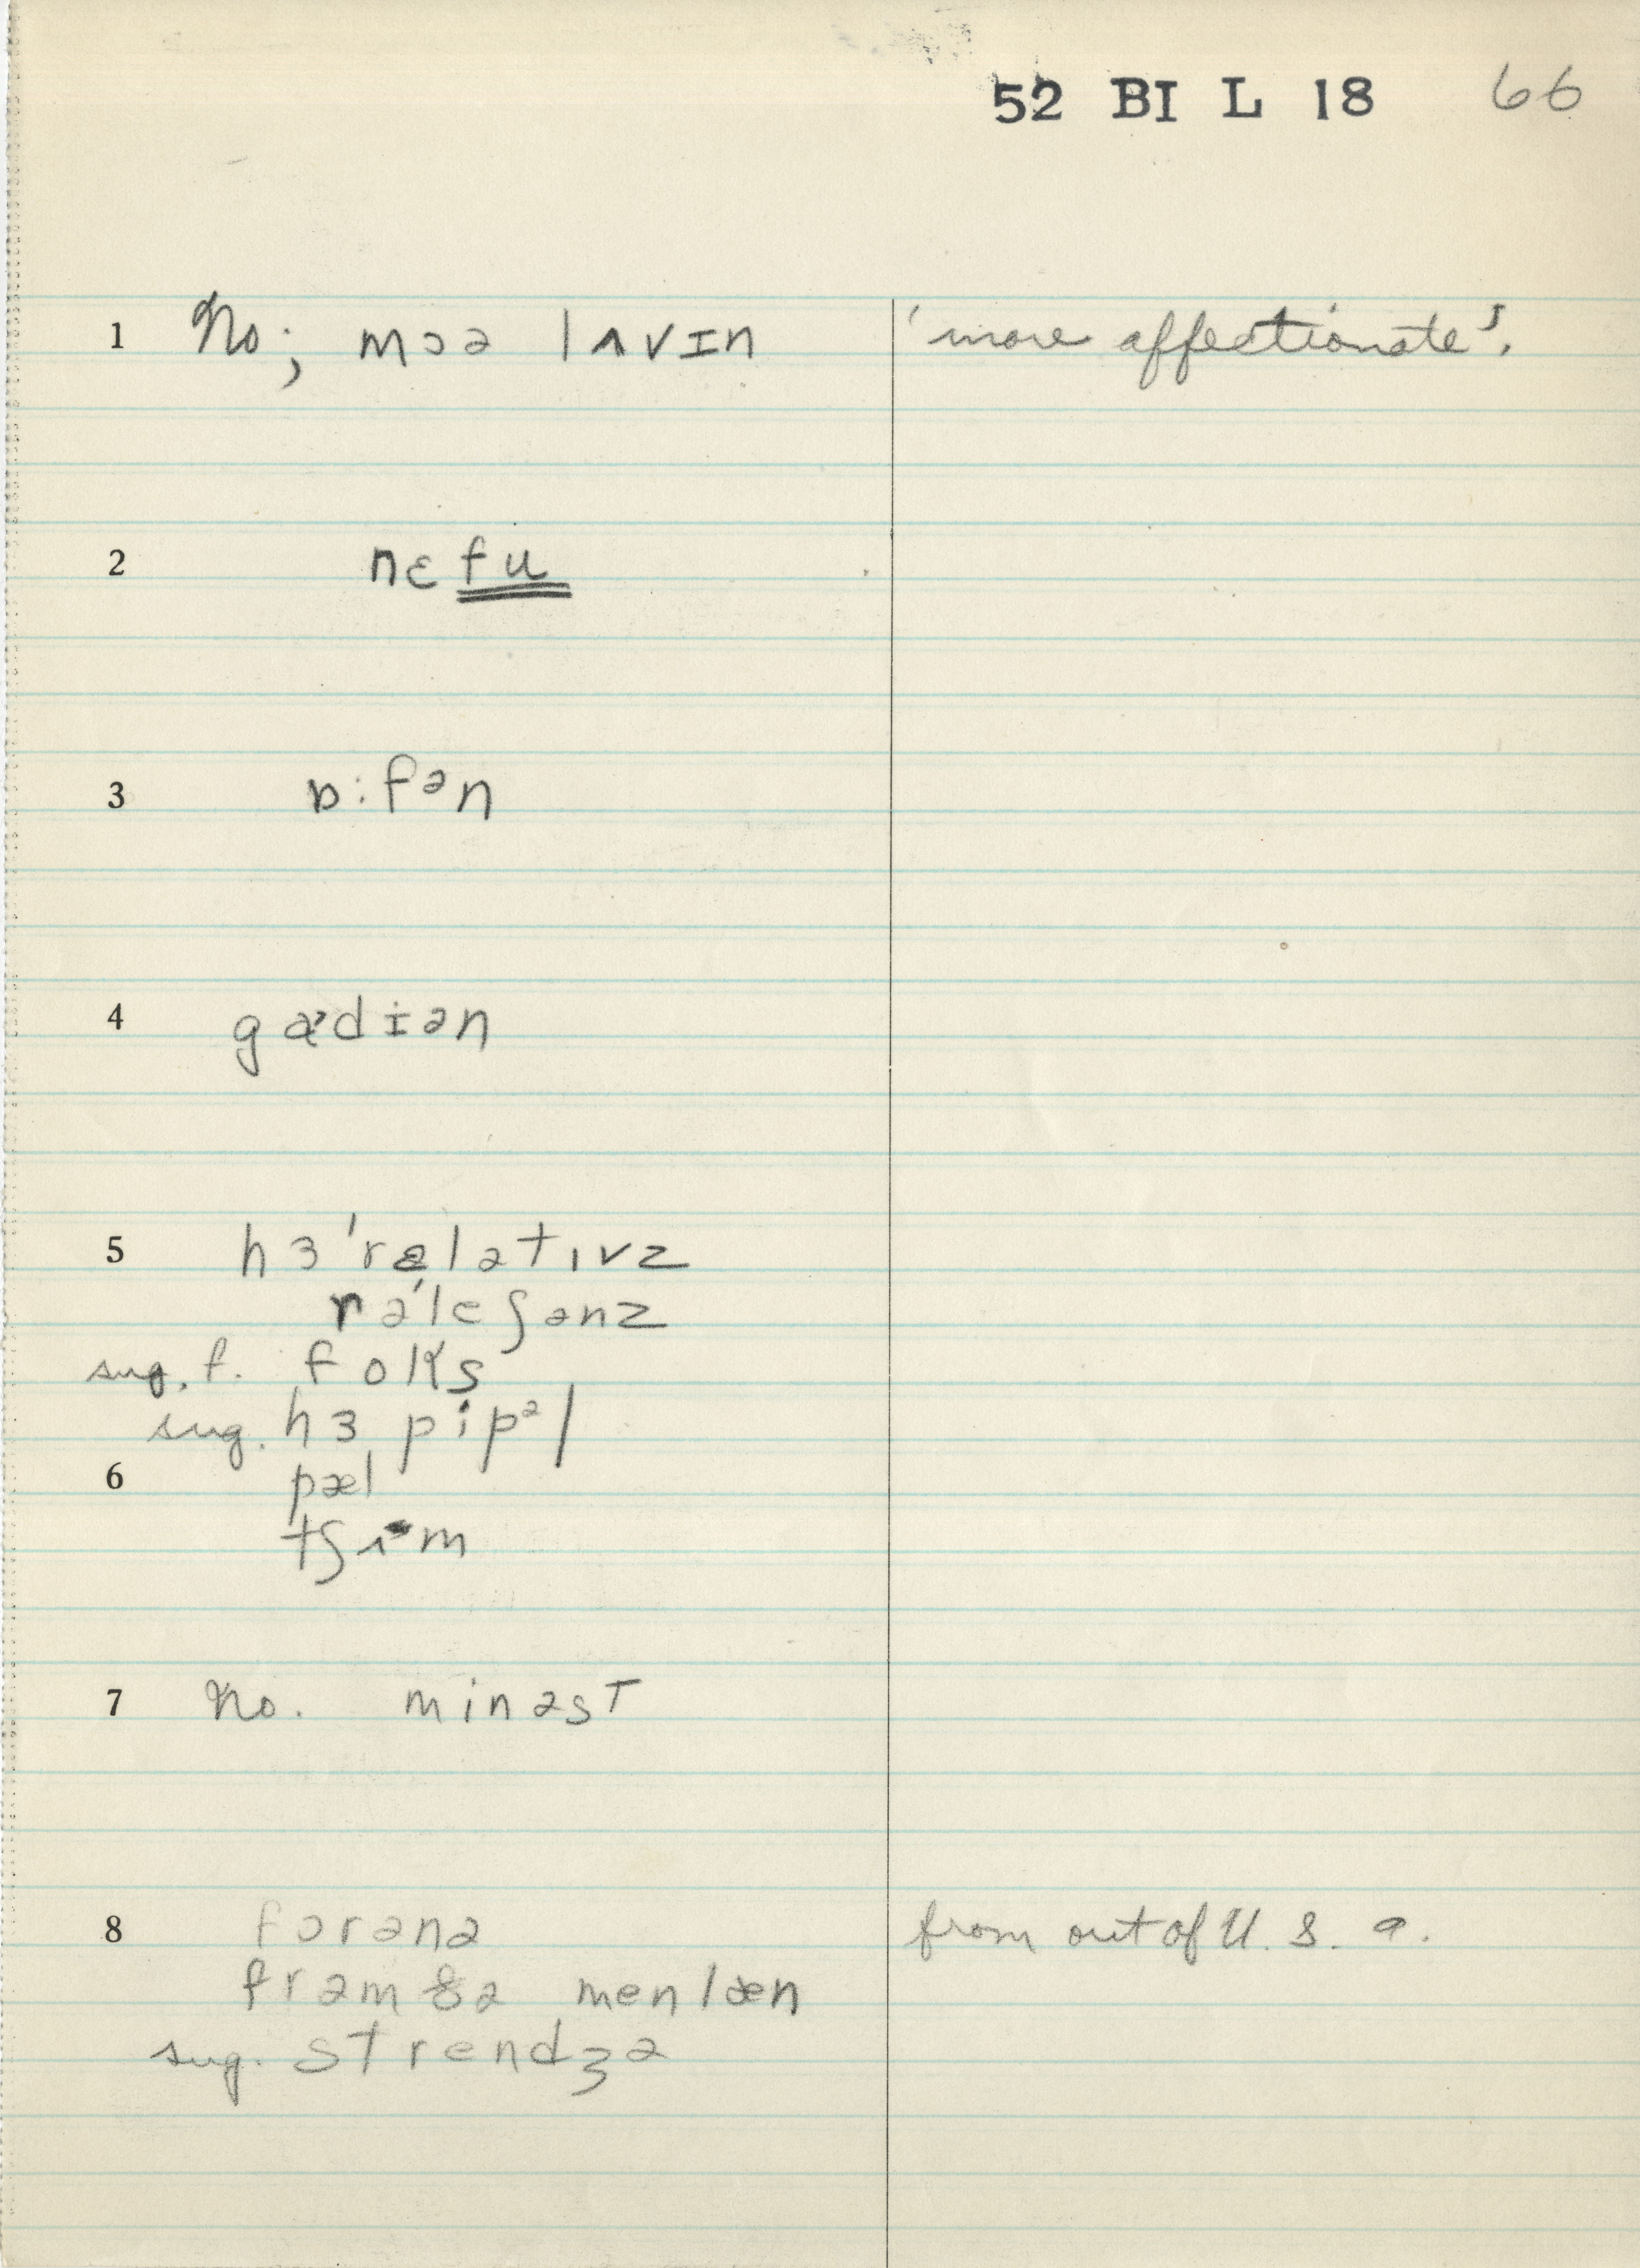 52 BI L 18 66
1 No; mɔə lʌvɪn 'more affectionate'.
2 nɛfu
3 ɒ:fən
4 gædɪən
5 hɜ 'rɛlətɪvz
rəˈleʃənz
sug. f. foks
sug. hɜ pipəl
6 pæl
tʃɪəm
7 No. minəst
8 fɔrənə from out of U.S.a.
frəm ðə menlæn
sug. strendʒə